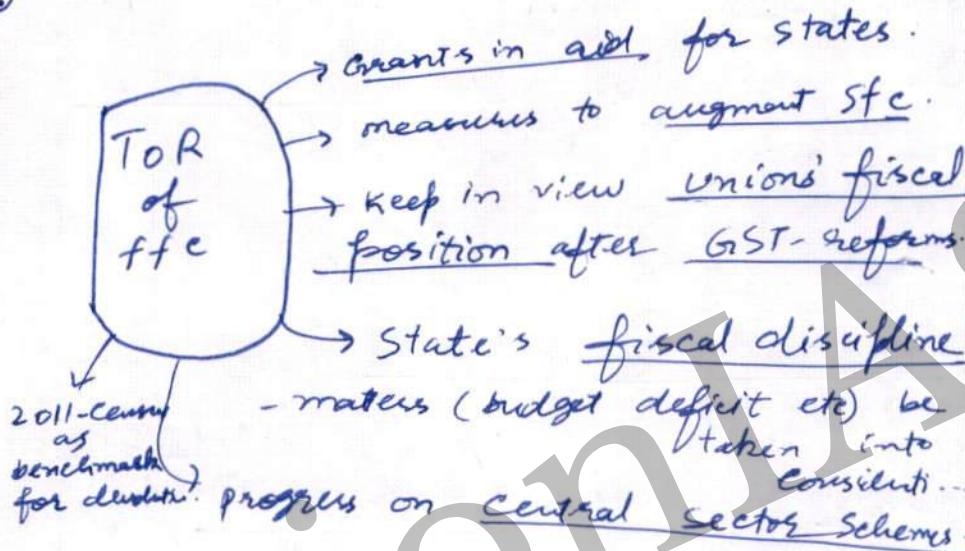 ToR
of
ffc
→ Grants in aid for states.
→ measures to augment Sfc.
→ Keep in view Unions' fiscal
position after GST-reforms.
→ State's fiscal discipline
- matters (budget deficit etc) be
taken into
2011-Census
as
benchmark
for
progress on Central Sector Schemes.
onIAS